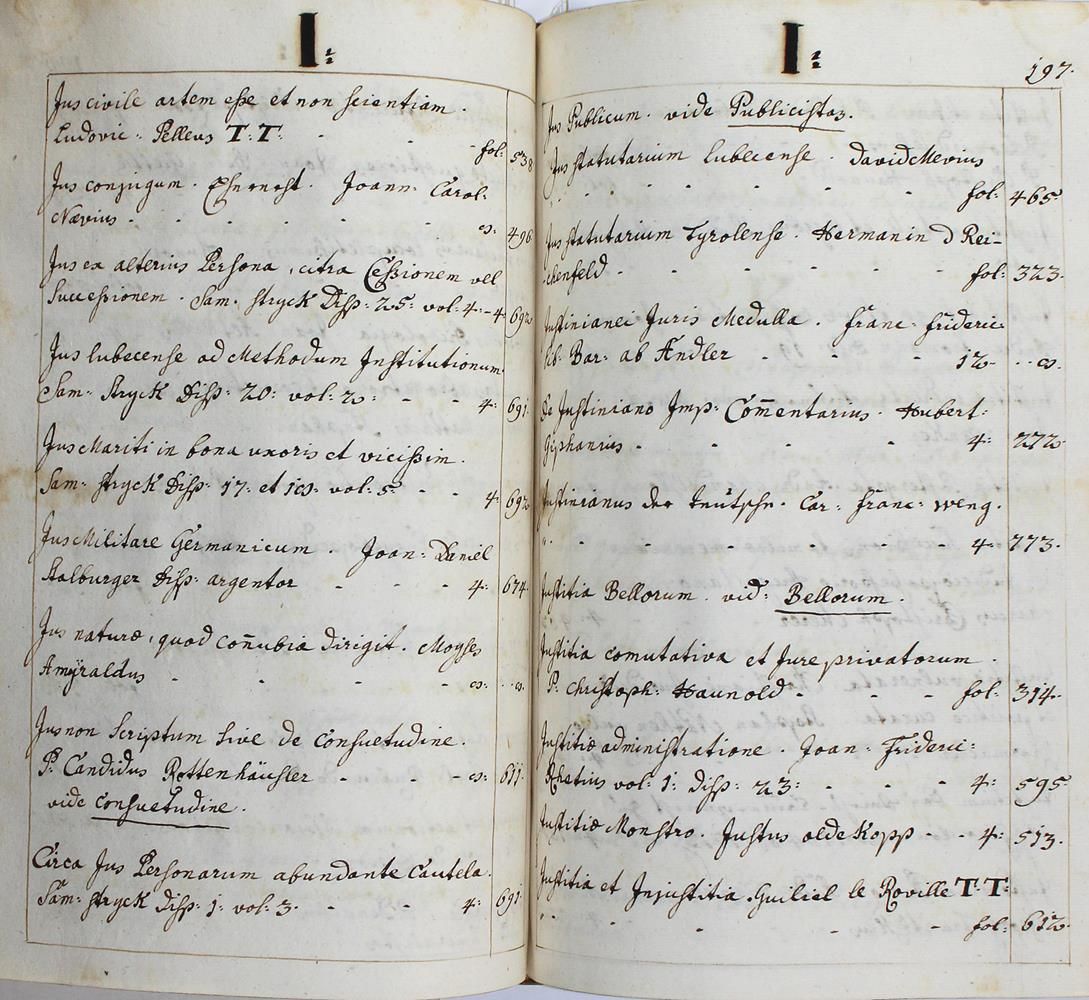 I:
Jus civile artem esse et non scientiam.
Ludovic: Pelleus T.T. - - fol: 538
Jus conjugum. Ehrenest. Joann: Carol:
Nævius - - - - 8: 496
Jus ex alterius Persona, citra Cessionem vel
Successionem. Sam: Stryck Disp: 25: vol: 4: - 4: 692
Jus lubecense ad Methodum Institutionum
Sam: Stryck Disp: 20: vol: 2: - - 4: 691
Jus Mariti in bona uxoris et vicissim.
Sam: Stryck Disp: 17: et 18: vol: 5: - - 4: 692
Jus Militare Germanicum. Joan: Daniel
Stalburger Disp: argentor - - - 4: 674
Jus naturæ, quod coñubia dirigit. Moyses
Amÿraldus - - - - - 8: . . 8.
Jus non Scriptum sive de Consuetudine.
P: Candidus Rottenhäusler - - - 8: 611
vide Consuetudine.
Circa Jus Personarum abundante Cautela.
Sam: Stryck Disp: 1: vol: 3. - - 4: 691
I:
197.
Jus Publicum. vide Publicistas.
Jus statutarium lubecense. David Mevius
- - - - - fol: 465
Jus statutarium Tyrolense. Herman in D Rei-
chenfeld - - - - - fol: 323.
Justinianei Juris Medulla. Franc: Frideric:
lib: Bar: ab Andler - - - 12. . . 8.
De Justiniano Imp: Com̄entarius. Hubert:
Giphanius - - - - - 4: 272
Justinianus der Teutsche. Car: Franc: Weng.
- - - - - - 4: 773.
Justitia Bellorum. vid: Bellorum.
Justitia comutativa et Jure privatorum.
P: Christoph: Haunold - - - fol: 314.
Justitiæ administratione. Joan: Frideric:
Rhetius vol: 1: Disp: 23: - - - 4: 595
Justitiæ Monstro. Justus oldekopp - - 4: 513.
Justitia et Injustitia. Guiliel le Roville T.T:
- - - - - fol: 612